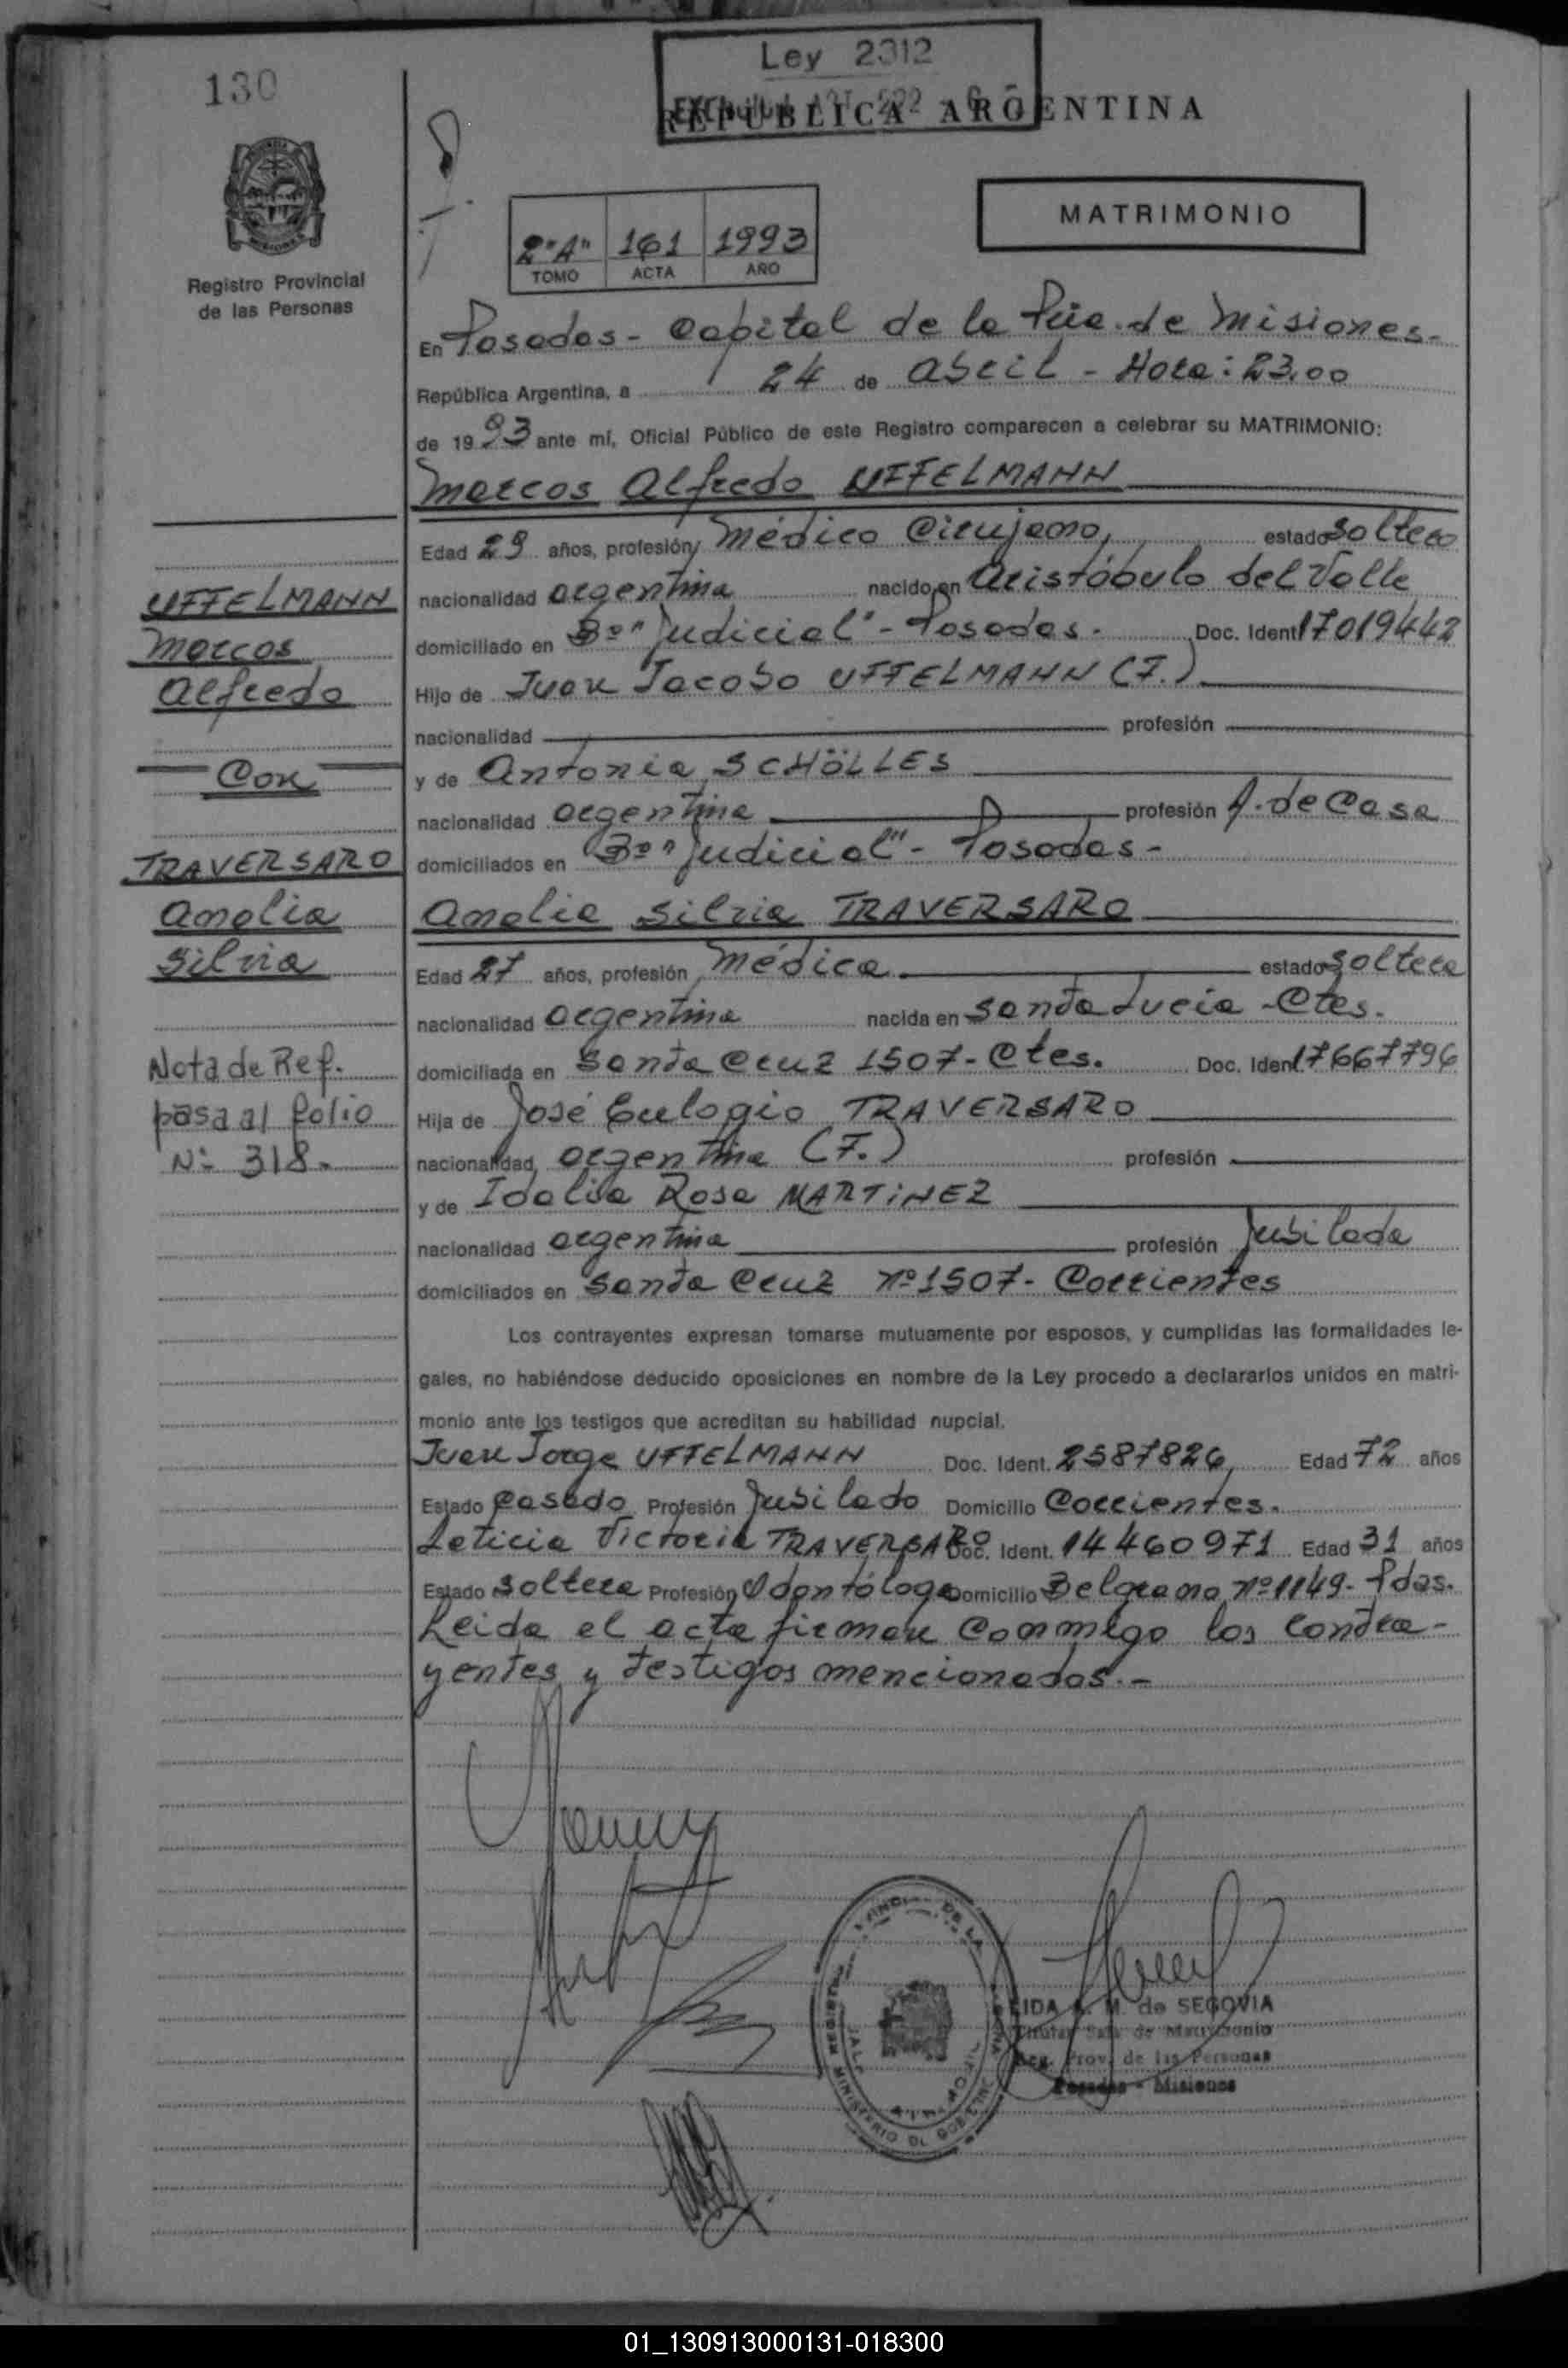 130
Ley 2312
REPUBLICA ARGENTINA
MATRIMONIO
2"A" 161 1993
TOMO ACTA AÑO
Registro Provincial
de las Personas
En Posadas - Capital de la Pcia. de Misiones -
República Argentina, a 24 de abril - Hora: 23,00
de 1993 ante mí, Oficial Público de este Registro comparecen a celebrar su MATRIMONIO:
Marcos Alfredo UFFELMANN
Edad 29 años, profesión Médico Cirujano, estado soltero
nacionalidad argentina nacido en Aristóbulo del Valle
domiciliado en Bº "Judicial" - Posadas - Doc. Ident. 17019442
Hijo de Juan Jacobo UFFELMANN (F.)
nacionalidad profesión
y de Antonia SCHÖLLES
nacionalidad argentina profesión A. de Casa
domiciliados en Bº "Judicial" - Posadas -
Analia Silvia TRAVERSARO
Edad 27 años, profesión Médica estado soltera
nacionalidad argentina nacida en Santa Lucia - Ctes.
domiciliada en Santa Cruz 1507 - Ctes. Doc. Ident. 17667796
Hija de José Eulogio TRAVERSARO
nacionalidad argentina (F.) profesión
y de Idalia Rosa MARTiNEZ
nacionalidad argentina profesión Jubilada
domiciliados en Santa Cruz Nº 1507 - Corrientes
Los contrayentes expresan tomarse mutuamente por esposos, y cumplidas las formalidades le-
gales, no habiéndose deducido oposiciones en nombre de la Ley procedo a declararlos unidos en matri-
monio ante los testigos que acreditan su habilidad nupcial.
Juan Jorge UFFELMANN Doc. Ident. 2587826, Edad 72 años
Estado casado Profesión Jubilado Domicilio Corrientes.
Leticia Victoria TRAVERSARO Doc. Ident. 14460971 Edad 31 años
Estado soltera Profesión Odontóloga Domicilio Belgrano Nº 1149 - Pdas.
Leida el acta firman conmigo los contra-
yentes y testigos mencionados.-
UFFELMANN
Marcos
Alfredo
Con
TRAVERSARO
Analia
Silvia
Nota de Ref.
pasa al folio
Nº 318.
M. de SEGOVIA
Titular Sala de Matrimonio
Reg. Prov. de las Personas
Posadas - Misiones
01_130913000131-018300